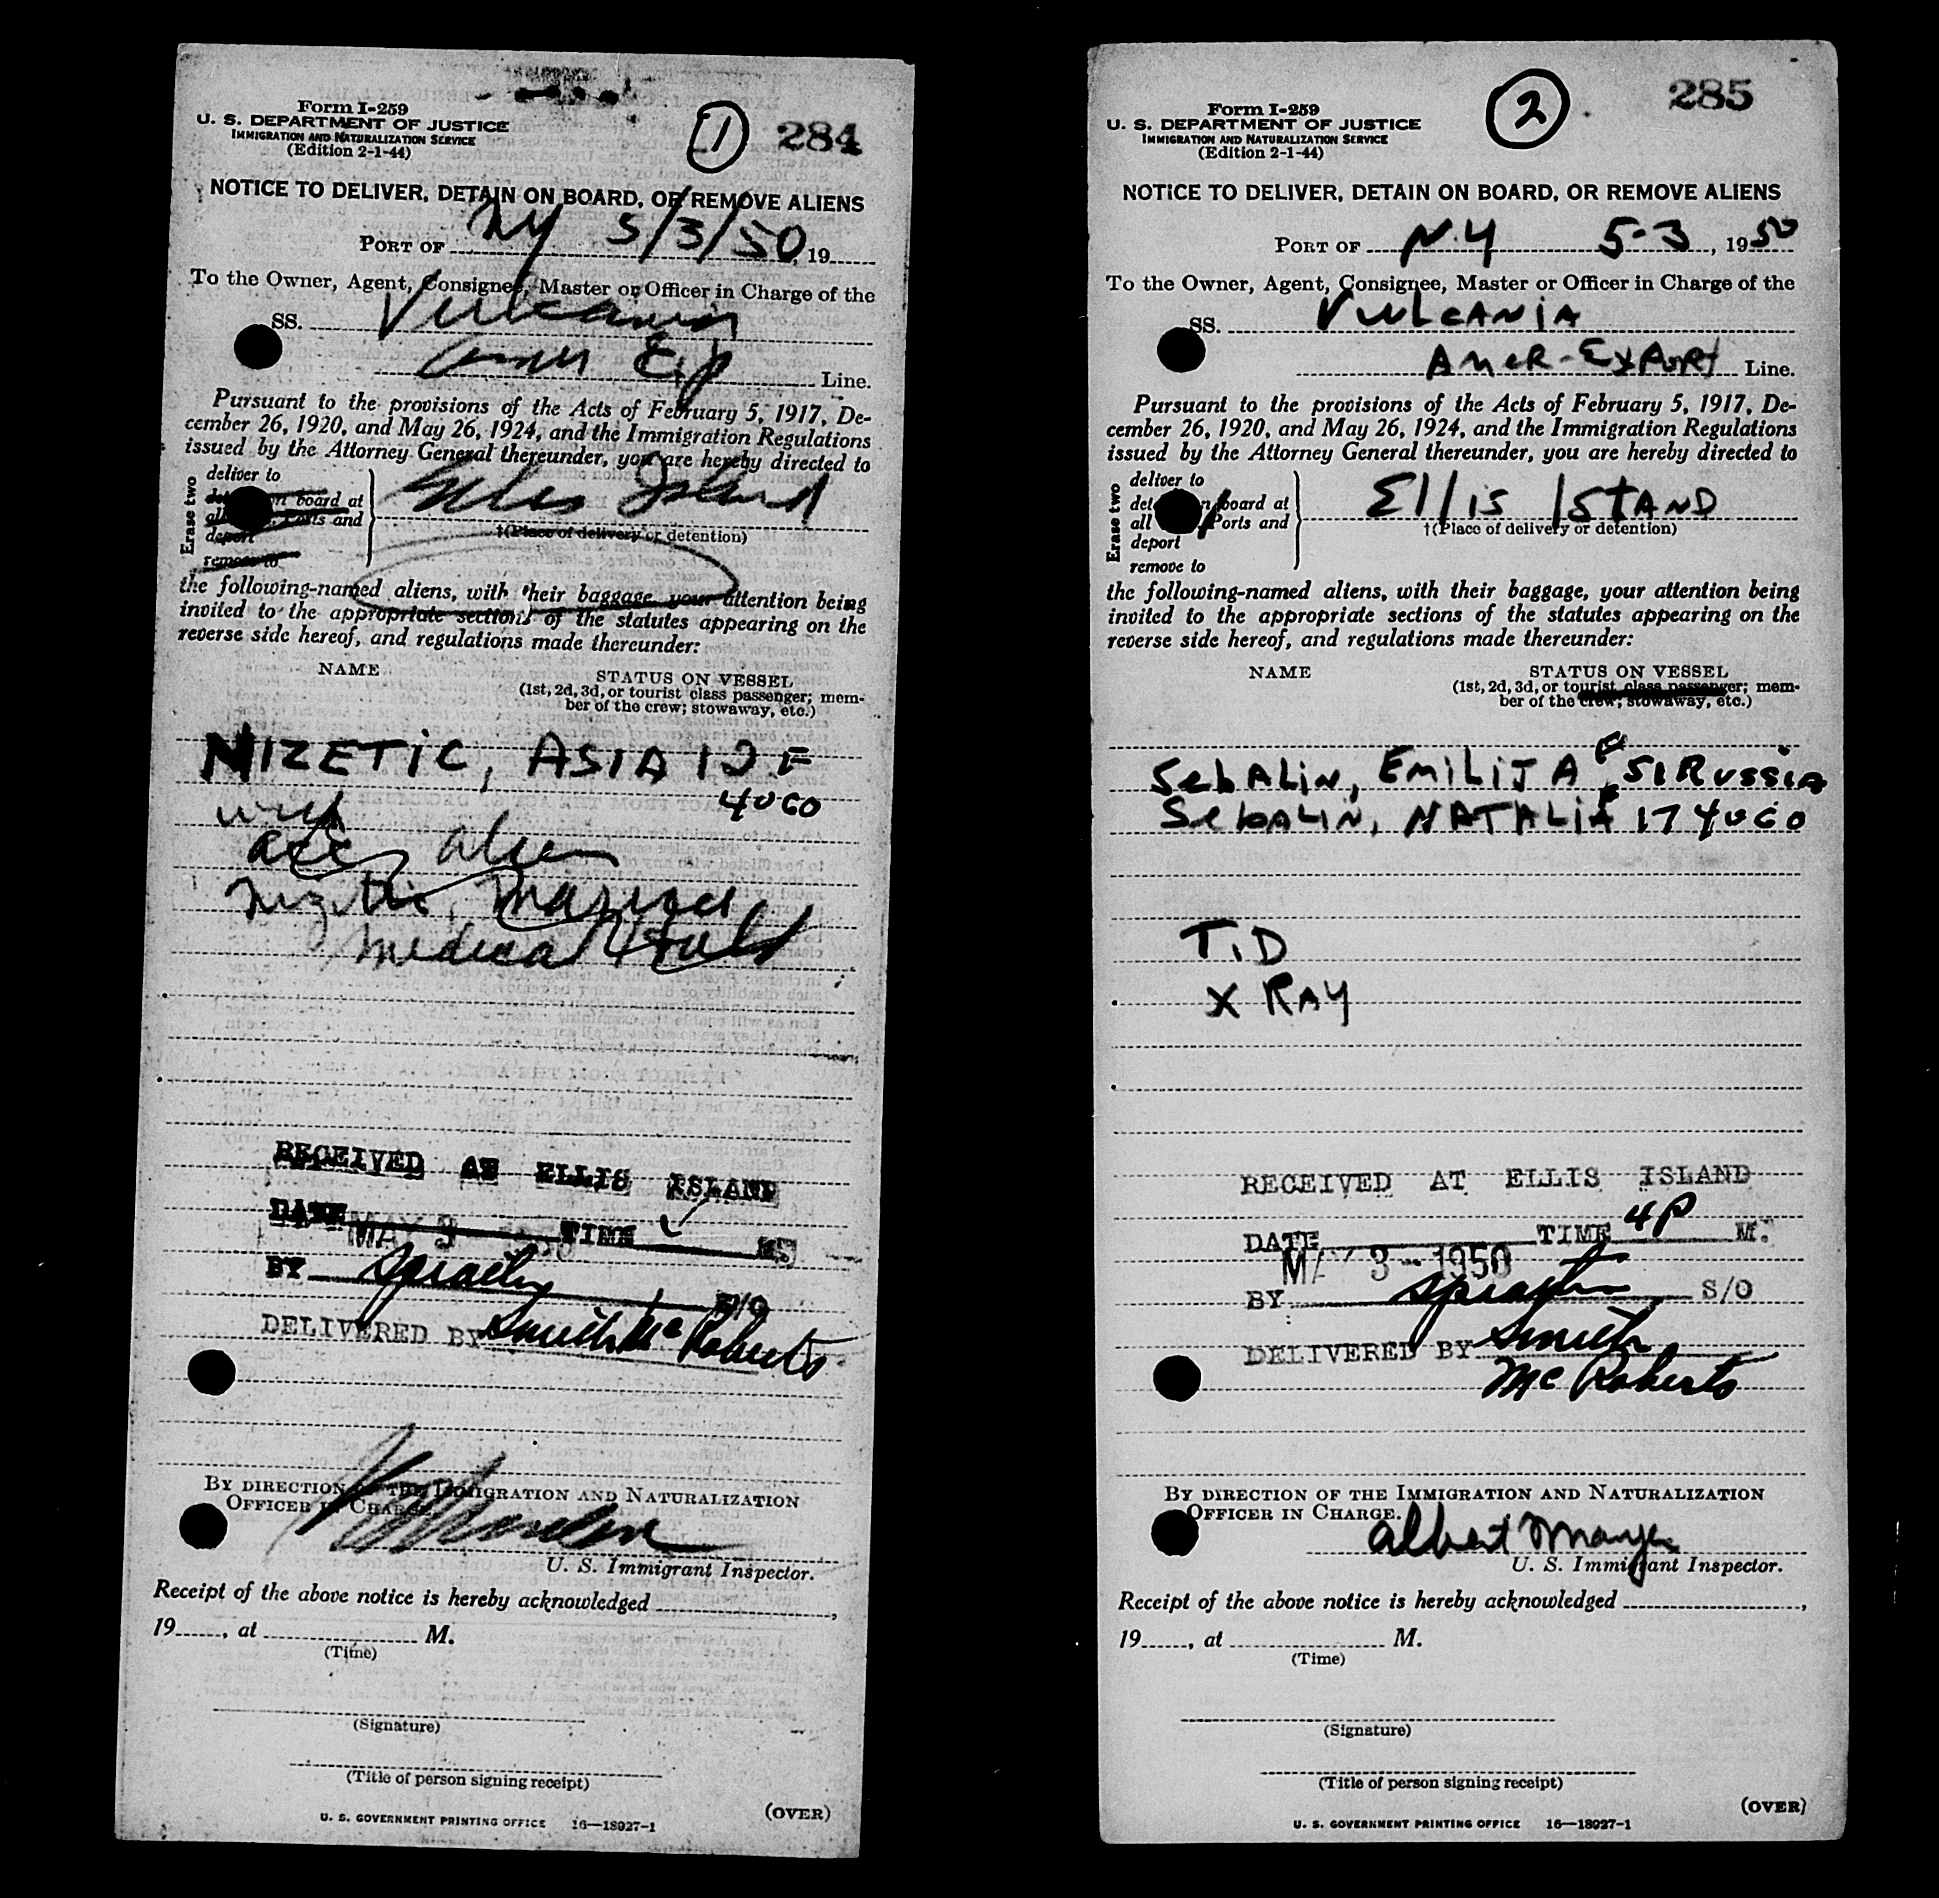 Form I-259
U. S. DEPARTMENT OF JUSTICE
IMMIGRATION AND NATURALIZATION SERVICE
(Edition 2-1-44)
1
284
NOTICE TO DELIVER, DETAIN ON BOARD, OR REMOVE ALIENS
PORT OF NY 5/3/50, 19
To the Owner, Agent, Consignee, Master or Officer in Charge of the
SS. Vulcania
Amer Exp Line.
Pursuant to the provisions of the Acts of February 5, 1917, De-
cember 26, 1920, and May 26, 1924, and the Immigration Regulations
issued by the Attorney General thereunder, you are hereby directed to
Erase two
deliver to
board at
and
deport
remove to
Island
†(Place of delivery or detention)
the following-named aliens, with their baggage, your attention being
invited to the appropriate sections of the statutes appearing on the
reverse side hereof, and regulations made thereunder:
NAME
STATUS ON VESSEL
(1st, 2d, 3d, or tourist class passenger; mem-
ber of the crew; stowaway, etc.)
NIZETIC, ASIA 12 F
YUGO
acc alien
Nizetic,
medical Hold
RECEIVED AT ELLIS ISLAND
DATE MAY 3 TIME
BY S/O
DELIVERED BY Smith McRoberts
BY DIRECTION OF THE IMMIGRATION AND NATURALIZATION
OFFICER IN CHARGE.
U. S. Immigrant Inspector.
Receipt of the above notice is hereby acknowledged ,
19 , at M.
(Time)
(Signature)
(Title of person signing receipt)
(OVER)
U. S. GOVERNMENT PRINTING OFFICE 16—18927-1
Form I-259
U. S. DEPARTMENT OF JUSTICE
IMMIGRATION AND NATURALIZATION SERVICE
(Edition 2-1-44)
2
285
NOTICE TO DELIVER, DETAIN ON BOARD, OR REMOVE ALIENS
PORT OF N.Y 5-3, 1950
To the Owner, Agent, Consignee, Master or Officer in Charge of the
SS. VULCANIA
AMER-EXPORT Line.
Pursuant to the provisions of the Acts of February 5, 1917, De-
cember 26, 1920, and May 26, 1924, and the Immigration Regulations
issued by the Attorney General thereunder, you are hereby directed to
Erase two
deliver to
board at
all Ports and
deport
remove to
Ellis ISLAND
†(Place of delivery or detention)
the following-named aliens, with their baggage, your attention being
invited to the appropriate sections of the statutes appearing on the
reverse side hereof, and regulations made thereunder:
NAME
STATUS ON VESSEL
(1st, 2d, 3d, or tourist class passenger; mem-
ber of the crew; stowaway, etc.)
SebALIN, EMILIJA 51 RUSSIA
SebALIN, NATALIA 17 YUGO
T.D
X RAY
RECEIVED AT ELLIS ISLAND
DATE MAY 3 - 1950 TIME 4P M.
BY S/O
DELIVERED BY Smith
McRoberts
BY DIRECTION OF THE IMMIGRATION AND NATURALIZATION
OFFICER IN CHARGE.
Albert
U. S. Immigrant Inspector.
Receipt of the above notice is hereby acknowledged ,
19 , at M.
(Time)
(Signature)
(Title of person signing receipt)
(OVER)
U. S. GOVERNMENT PRINTING OFFICE 16—18927-1